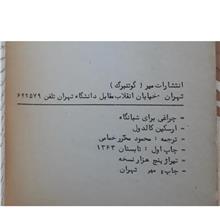 انتشارات میر ( گوتنبرگ )
تهران - خیابان انقلاب مقابل دانشگاه تهران تلفن ۶۴۲۵۷۹
- چراغی برای شبانگاه
- ارسکین کالدول
- ترجمه : محمود محرر خمامی
- چاپ اول : تابستان ۱۳۶۳
- تیراژ پنج هزار نسخه
- چاپ مهر تهران